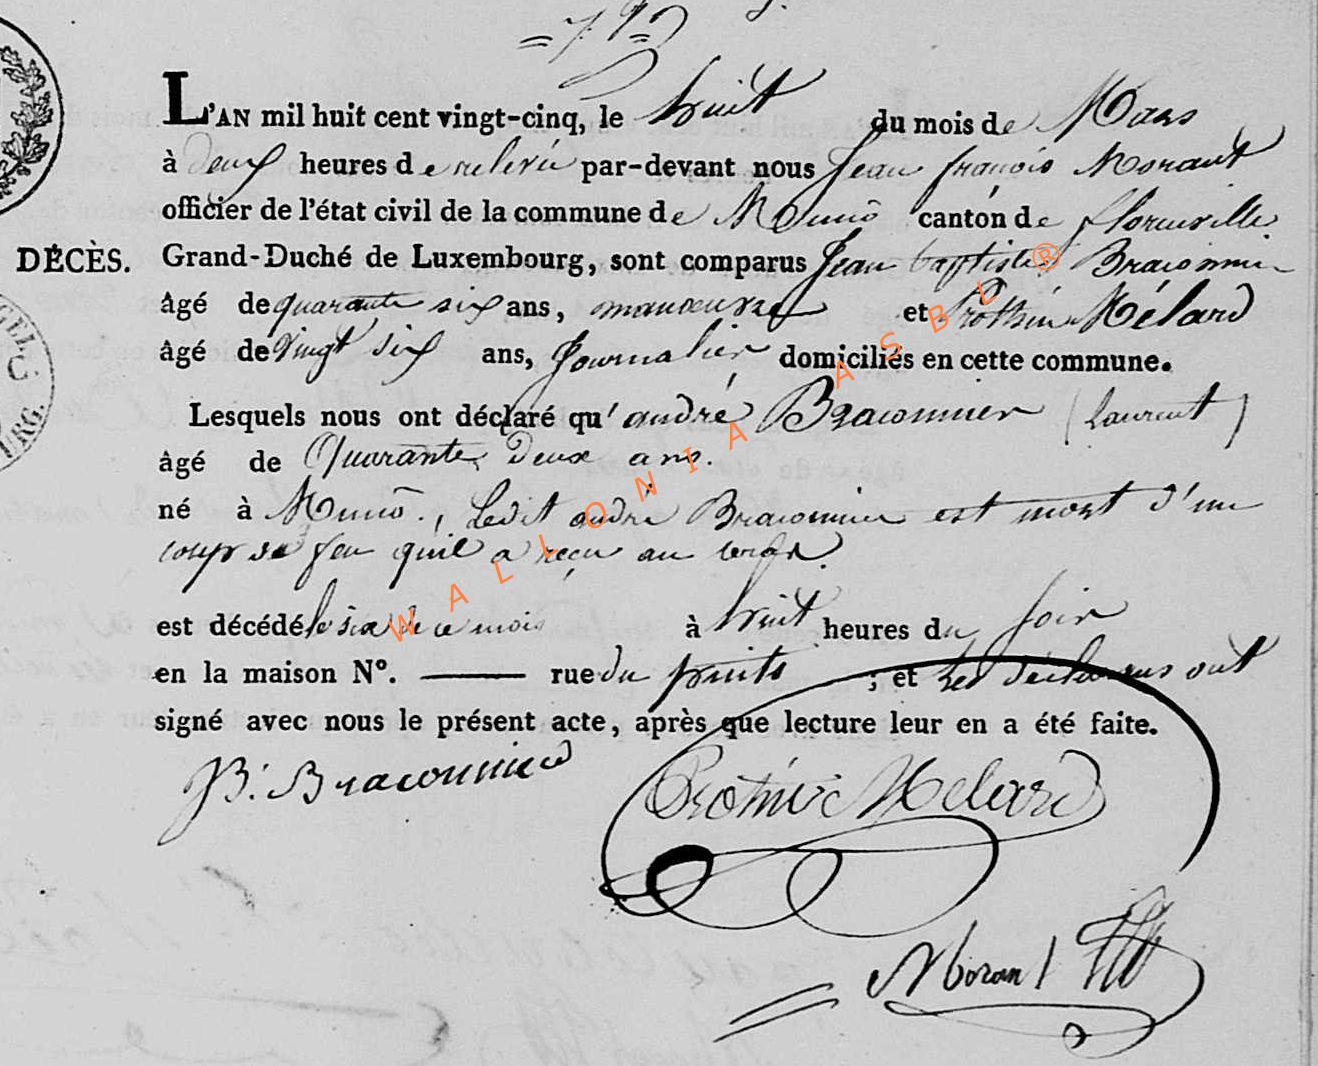 L'AN mil huit cent vingt-cinq, le huit du mois de Mars
à deux heures de relevée par-devant nous Jean françois Morant
officier de l'état civil de la commune de Muno canton de florenville
DÉCÈS.
Grand-Duché de Luxembourg, sont comparus Jean baptiste Braconnier
âgé de quarante six ans, manoeuvre et Prothin Mélard
âgé de vingt six ans, Journalier domiciliés en cette commune.
Lesquels nous ont déclaré qu'andré Braconnier (Laurent)
âgé de Quarante Deux ans.
né à Muno, Ledit andré Braconnier est mort d'un
coup de feu qu'il a reçu au
est décédé le six de ce mois à huit heures du soir
en la maison N°. rue du puits ; et les déclarans ont
signé avec nous le présent acte, après que lecture leur en a été faite.
JB. Braconnier
Protin Melard
Morant
WALLONIA ASBL ®
URG.